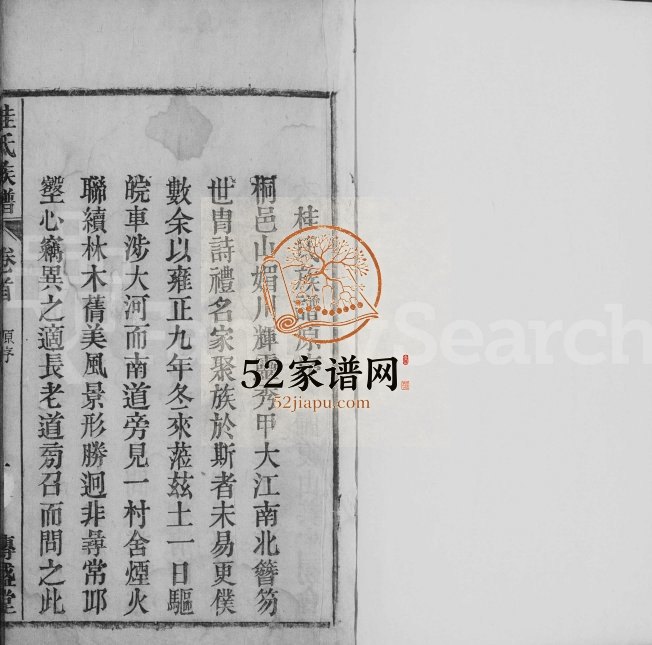 桂氏族譜原序
桐邑山媚川輝靈秀甲大江南北簪笏
世胄詩禮名家聚族於斯者未易更僕
數余以雍正九年冬來蒞茲土一日驅
皖車涉大河而南道旁見一村舍煙火
聯續林木蒨美風景形勝迥非尋常邱
壑心竊異之適長老道旁召而問之此
桂氏族譜 卷首 原序 一
52家谱网
52jiapu.com
FamilySearch